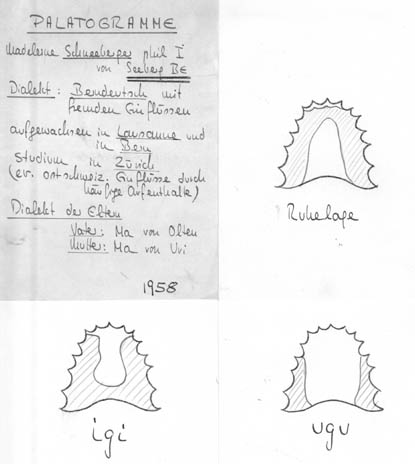 PALATOGRAMME
Madeleine Schneeberger phil I
von Seeberg BE
Dialekt: Berndeutsch mit
fremden Einflüssen
aufgewachsen in Lausanne und
in Bern
Studium in Zürich
(ev. ostschweiz. Einflüsse durch
häufige Aufenthalte)
Dialekt der Eltern
Vater: Ma von Olten
Mutter: Ma von Uri
1958
Ruhelage
igi
ugu